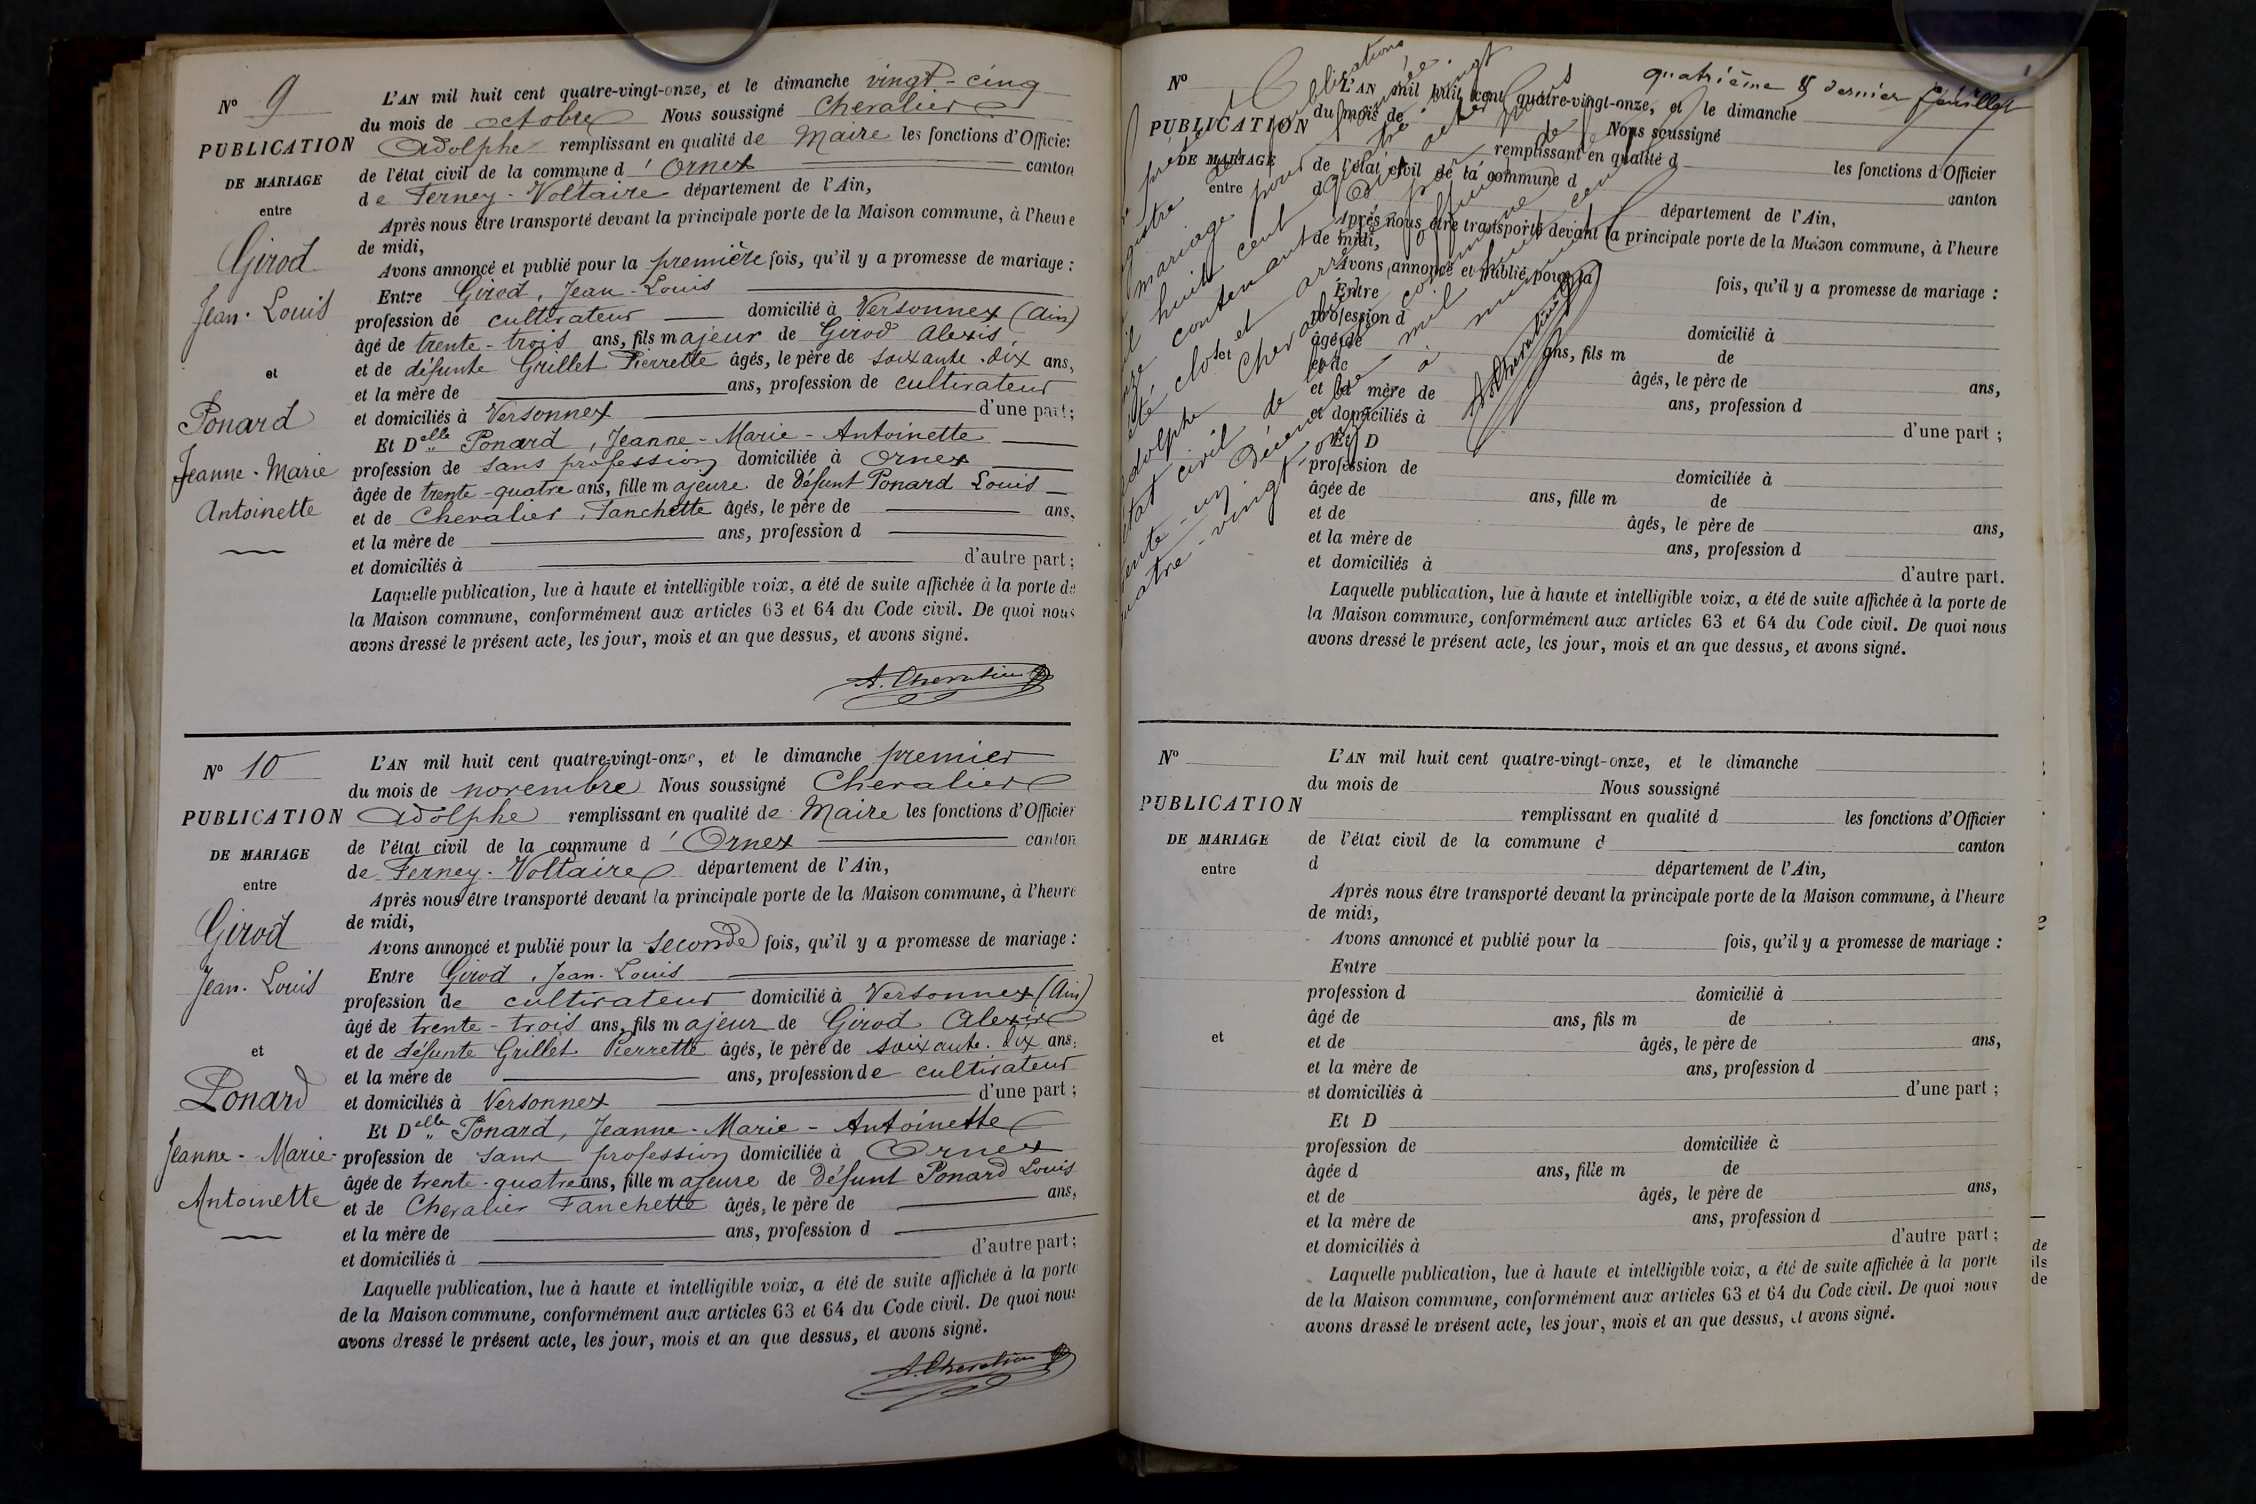 Nº 9
PUBLICATION
DE MARIAGE
entre
Girod
Jean-Louis
et
Ponard
Jeanne-Marie
Antoinette
L'AN mil huit cent quatre-vingt-onze, et le dimanche vingt-cinq
du mois de octobre Nous soussigné Chevalier
Adolphe remplissant en qualité de Maire les fonctions d'Officier
de l'état civil de la commune d'Ornex canton
de Ferney-Voltaire département de l'Ain,
Après nous être transporté devant la principale porte de la Maison commune, à l'heure
de midi,
Avons annoncé et publié pour la première fois, qu'il y a promesse de mariage :
Entre Girod, Jean-Louis
profession de cultivateur domicilié à Versonnex (Ain)
âgé de trente-trois ans, fils majeur de Girod Alexis
et de défunte Grillet Pierrette âgés, le père de soixante-dix ans,
et la mère de ans, profession de cultivateur
et domiciliés à Versonnex d'une part ;
Et Delle Ponard, Jeanne-Marie-Antoinette
profession de sans profession domiciliée à Ornex
âgée de trente-quatre ans, fille majeure de défunt Ponard Louis
et de Chevalier, Fanchette âgés, le père de ans,
et la mère de ans, profession d
et domiciliés à d'autre part ;
Laquelle publication, lue à haute et intelligible voix, a été de suite affichée à la porte de
la Maison commune, conformément aux articles 63 et 64 du Code civil. De quoi nous
avons dressé le présent acte, les jour, mois et an que dessus, et avons signé.
A. Chevalier
Nº 10
PUBLICATION
DE MARIAGE
entre
Girod
Jean-Louis
et
Ponard
Jeanne-Marie-
Antoinette
L'AN mil huit cent quatre-vingt-onze, et le dimanche premier
du mois de novembre Nous soussigné Chevalier
Adolphe remplissant en qualité de Maire les fonctions d'Officier
de l'état civil de la commune d'Ornex canton
de Ferney-Voltaire département de l'Ain,
Après nous être transporté devant la principale porte de la Maison commune, à l'heure
de midi,
Avons annoncé et publié pour la seconde fois, qu'il y a promesse de mariage :
Entre Girod, Jean-Louis
profession de cultivateur domicilié à Versonnex (Ain)
âgé de trente-trois ans, fils majeur de Girod Alexis
et de défunte Grillet Pierrette âgés, le père de soixante-dix ans,
et la mère de ans, profession de cultivateur
et domiciliés à Versonnex d'une part ;
Et Delle Ponard, Jeanne-Marie-Antoinette
profession de sans profession domiciliée à Ornex
âgée de trente-quatre ans, fille majeure de défunt Ponard Louis
et de Chevalier Fanchette âgés, le père de ans,
et la mère de ans, profession d
et domiciliés à d'autre part ;
Laquelle publication, lue à haute et intelligible voix, a été de suite affichée à la porte
de la Maison commune, conformément aux articles 63 et 64 du Code civil. De quoi nous
avons dressé le présent acte, les jour, mois et an que dessus, et avons signé.
A. Chevalier
quatrième & dernier feuillet
présent
registre de publications
mariage pour l'année
mil huit cent quatre-vingt
onze contenant dix actes
été clos et arrêté par nous
Adolphe Chevalier officier de
état civil de la commune
trente-un Décembre mil huit cent
quatre-vingt-onze à
A. Chevalier
Nº
PUBLICATION
DE MARIAGE
entre
L'AN mil huit cent quatre-vingt-onze, et le dimanche
du mois de Nous soussigné
remplissant en qualité d les fonctions d'Officier
de l'état civil de la commune d canton
d département de l'Ain,
Après nous être transporté devant la principale porte de la Maison commune, à l'heure
de midi,
Avons annoncé et publié pour la fois, qu'il y a promesse de mariage :
Entre
profession d domicilié à
âgé de ans, fils m de
et de âgés, le père de ans,
et la mère de ans, profession d
et domiciliés à d'une part ;
Et D
profession de domiciliée à
âgée de ans, fille m de
et de âgés, le père de ans,
et la mère de ans, profession d
et domiciliés à d'autre part.
Laquelle publication, lue à haute et intelligible voix, a été de suite affichée à la porte de
la Maison commune, conformément aux articles 63 et 64 du Code civil. De quoi nous
avons dressé le présent acte, les jour, mois et an que dessus, et avons signé.
Nº
PUBLICATION
DE MARIAGE
entre
et
L'AN mil huit cent quatre-vingt-onze, et le dimanche
du mois de Nous soussigné
remplissant en qualité d les fonctions d'Officier
de l'état civil de la commune d canton
d département de l'Ain,
Après nous être transporté devant la principale porte de la Maison commune, à l'heure
de midi,
Avons annoncé et publié pour la fois, qu'il y a promesse de mariage :
Entre
profession d domicilié à
âgé de ans, fils m de
et de âgés, le père de ans,
et la mère de ans, profession d
et domiciliés à d'une part ;
Et D
profession de domiciliée à
âgée d ans, fille m de
et de âgés, le père de ans,
et la mère de ans, profession d
et domiciliés à d'autre part ;
Laquelle publication, lue à haute et intelligible voix, a été de suite affichée à la porte
de la Maison commune, conformément aux articles 63 et 64 du Code civil. De quoi nous
avons dressé le présent acte, les jour, mois et an que dessus, et avons signé.
de
ils
de